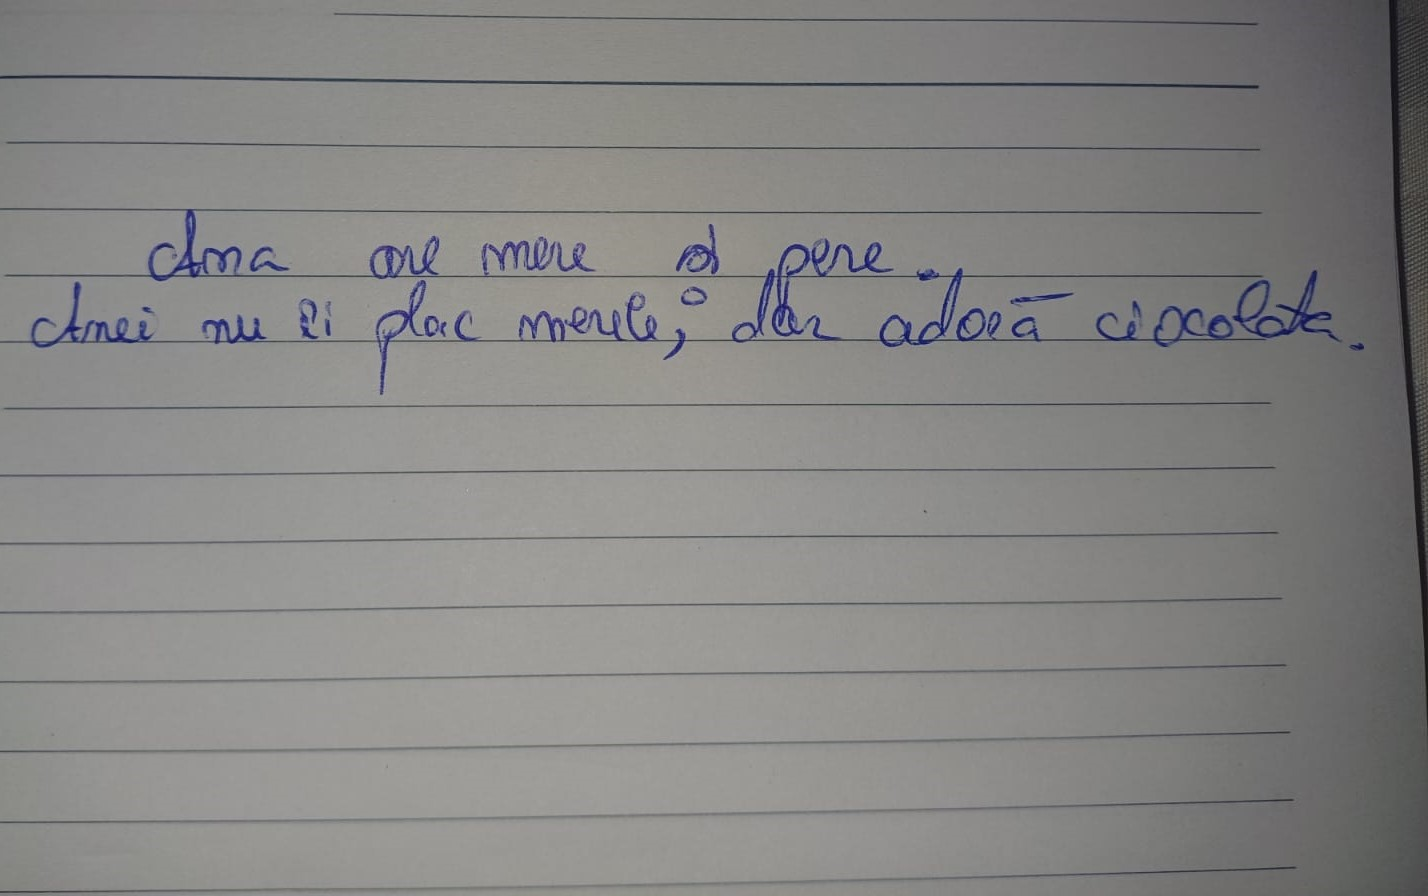 Ana are mere și pere.
Anei nu îi plac merele; dar adoră ciocolata.